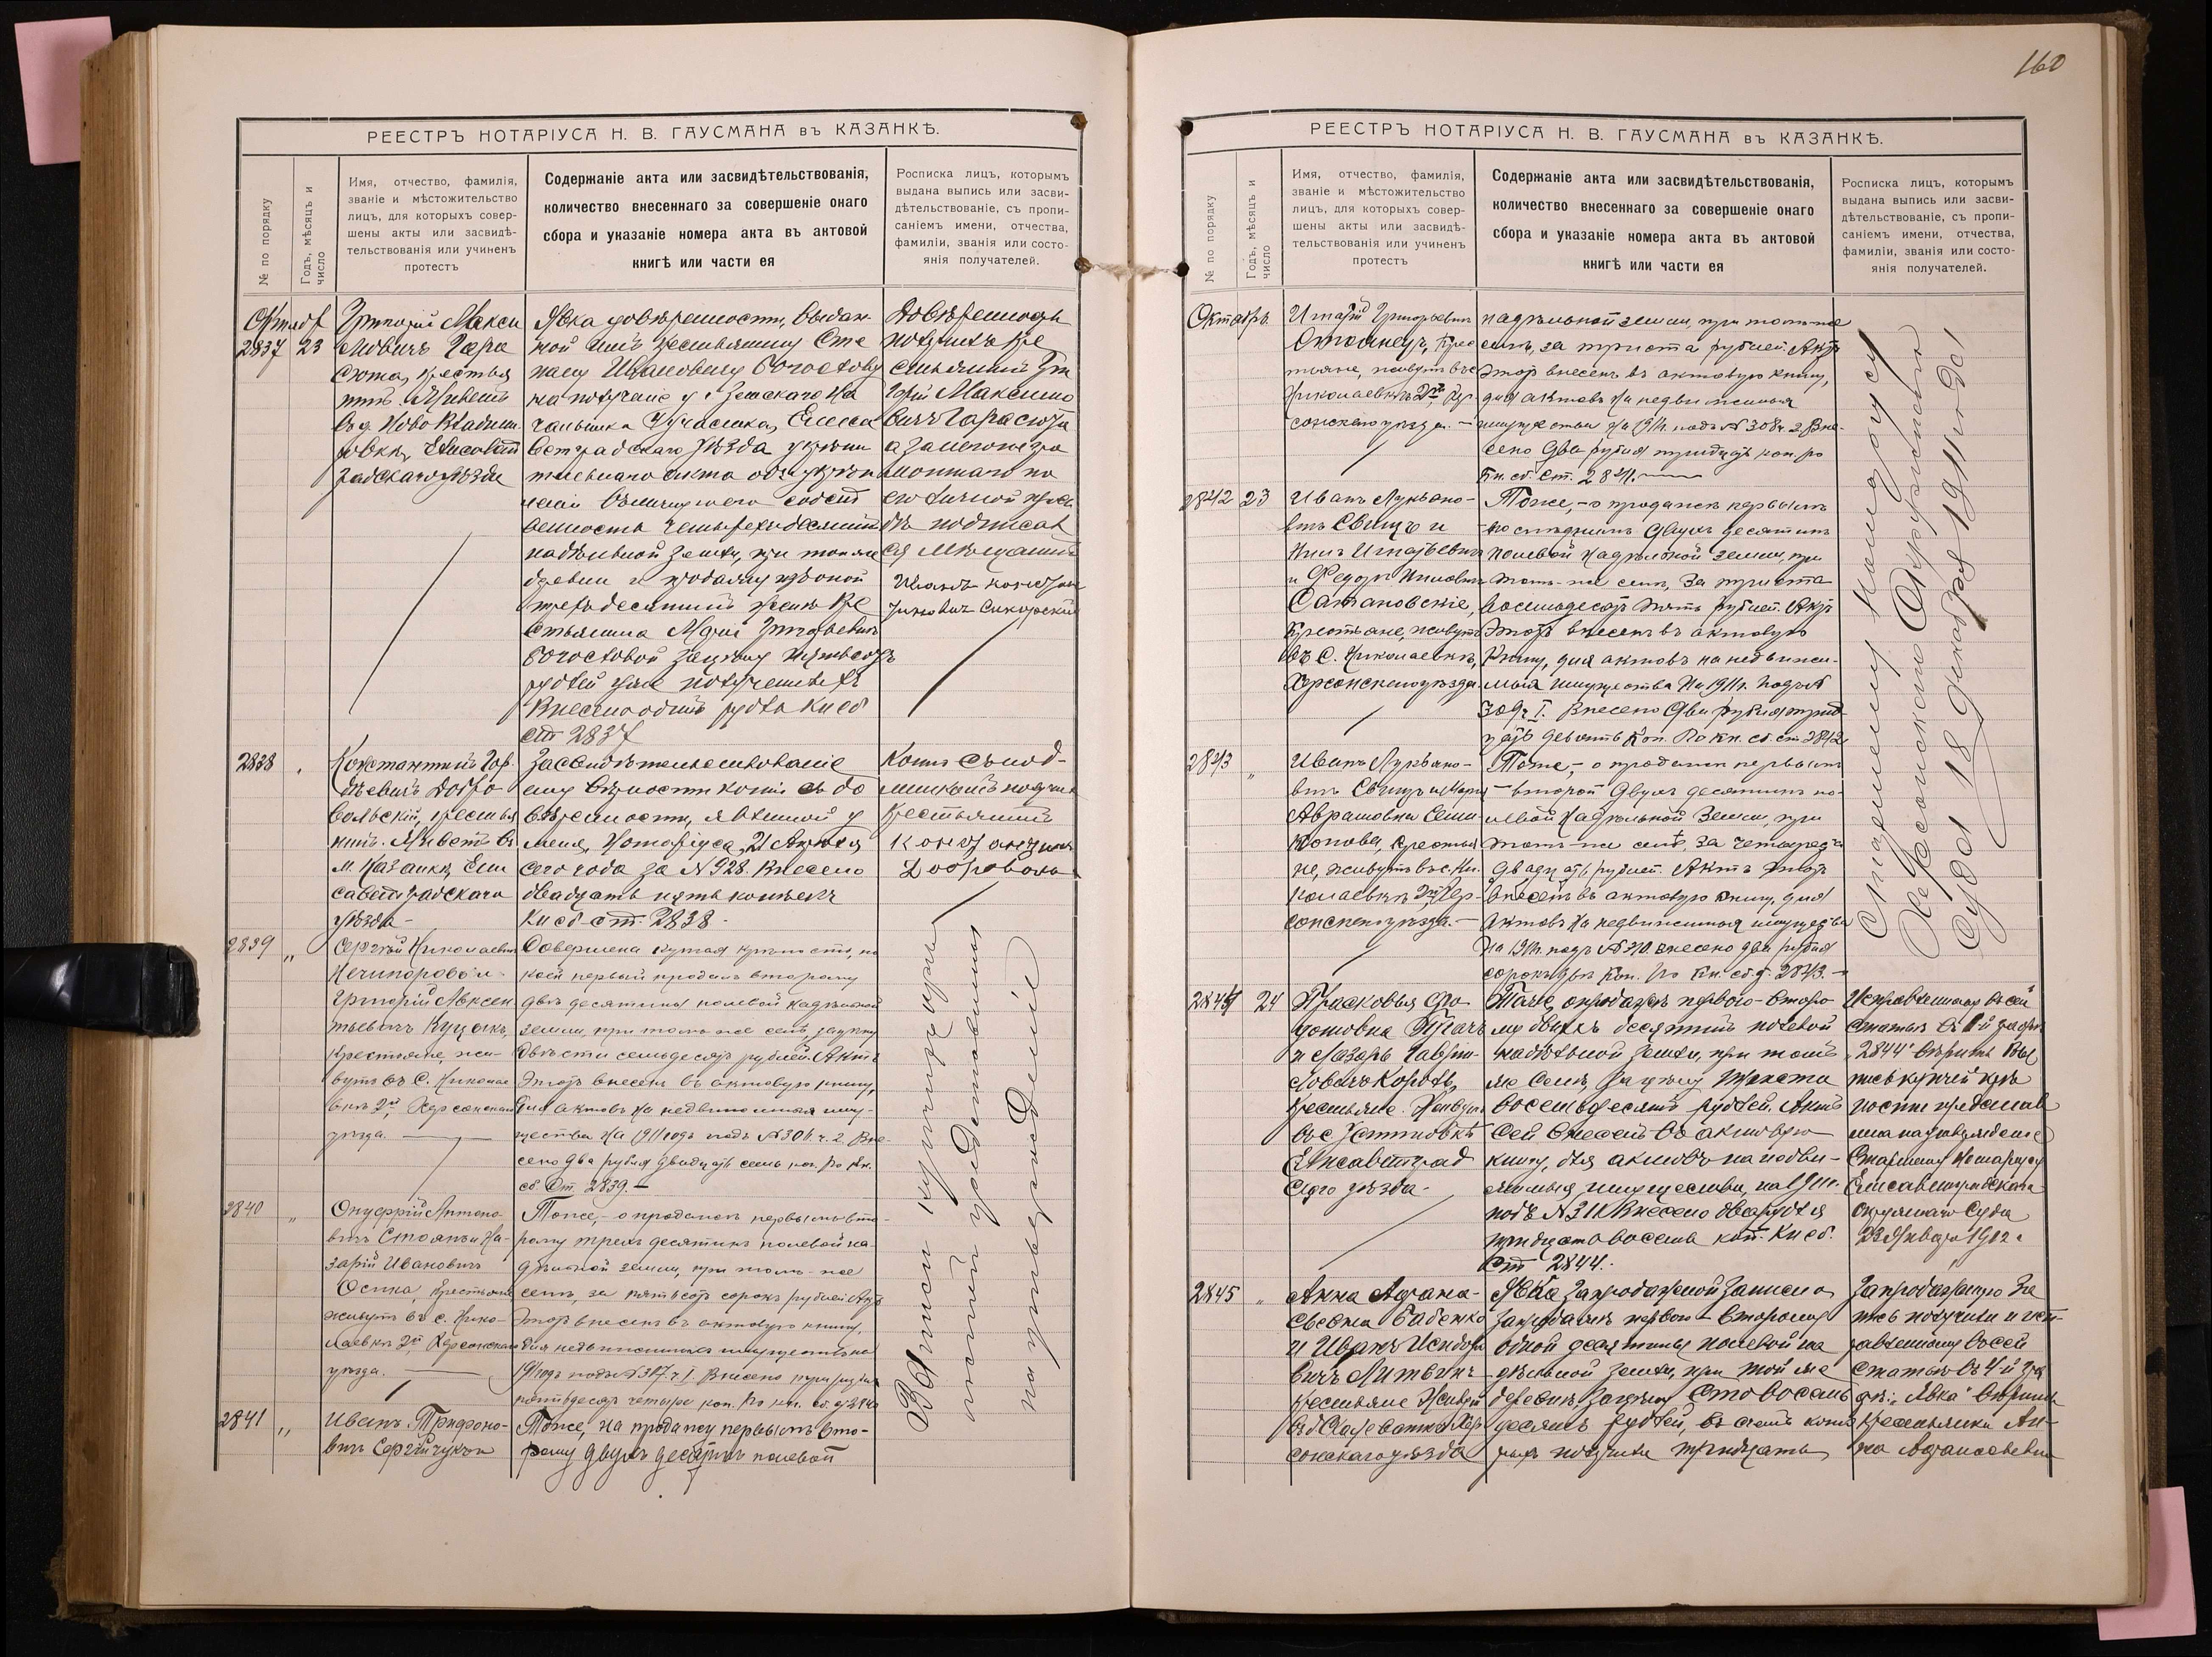 160
РЕЕСТРЪ НОТАРІУСА Н. В. ГАУСМАНА въ КАЗАНКѢ.
№ по порядку
Годъ, мѣсяцъ и
число
Имя, отчество, фамилія,
званіе и мѣстожительство
лицъ, для которыхъ совер-
шены акты или засвидѣ-
тельствованія или учиненъ
протестъ
Содержаніе акта или засвидѣтельствованія,
количество внесеннаго за совершеніе онаго
сбора и указаніе номера акта въ актовой
книгѣ или части ея
Росписка лицъ, которымъ
выдана выпись или засви-
дѣтельствованіе, съ пропи-
саніемъ имени, отчества,
фамиліи, званія или состо-
янія получателей.
2837 23
Григорій Макси
мовичъ Гара
сюта, крестья
нинъ. Живетъ
въ д. Ново Владими
ровкѣ, Елисавет
градскаго уѣзда
Явка довѣренности, выдан-
ной имъ крестьянину Сте
пану Ивановичу Богослову
на полученіе у Земскаго На
чальника участка, Елиса
ветградскаго уѣзда укрѣпи
тельнаго акта объ укрѣп
леніи въ личную его собст
венность четырехъ десятинъ
надѣльной земли, при той же
деревни и продажу изъ оной
трехъ десятинъ женѣ кре
стьянина Маріи Григорьевнѣ
Богословой за цѣну пятьсотъ
рублей уже полученныхъ
Внесено одинъ рубль Кн сб
ст 2837
Довѣренность
получилъ кре
стьянинъ Гри
горій Максимо
вичъ Гарасюта
а за него негра
мотнаго по
его личной прось
бѣ подписал
ся мѣщанинъ
Иванъ
Сикорскій
2838
Константинъ Гор-
дѣевичъ Добро
вольскій, крестья
нинъ. Живетъ въ
м. Казанкѣ, Ели
саветградскаго
уѣзда -
Засвидѣтельствованіе
вѣрности копіи съ до
вѣренности, явленной у
меня, Нотаріуса, 21
сего года за № 928. Внесено
двадцать пять копѣекъ
Кн сб ст. 2838.
Копію съ под-
линнымъ получилъ
Крестьянинъ
Константинъ
Доброволь
2839 "
Сергѣй Николаевичъ
Нечипорово и
Григорій Авксен
тьевичъ Куцакъ,
крестьяне, жи-
вутъ въ с. Никола
евкѣ 2й, Херсонскаго
уѣзда.
Совершена купчая крѣпость, по
коей первый продалъ второму
двѣ десятины полевой надѣльной
земли, при томъ же селѣ, за цѣну
двѣсти семьдесятъ рублей. Актъ
этотъ внесенъ въ актовую книгу,
для актовъ на недвижимыя иму-
щества на 1911 годъ подъ № 306. ч. 2. Вне-
сено два рубля двадцать семь коп. По кн.
сб ст 2839. -
2840 "
Онуфрій Антоно
вичъ Стоянъ и На-
зарій Ивановичъ
Осипа, крестьяне
живутъ въ с. Нико-
лаевкѣ 2й Херсонскаго
уѣзда.
Тоже, - о продажѣ первымъ вто-
рому трехъ десятинъ полевой на-
дѣльной земли, при томъ-же
селѣ, за пятьсотъ сорокъ рублей. Актъ
этотъ внесенъ въ актовую книгу,
для недвижимыхъ имуществъ на
1911 годъ подъ № 307. ч I. Внесено три рубля
пятьдесятъ четыре коп. По кн. сб. ст 2840
2841 "
Иванъ Трифоно-
вичъ Сергійчукъ и
Тоже, на продажу первымъ вто-
рому двухъ десятинъ полевой
Выписи купчихъ крѣпо
стей представлены
на утвержденіе
РЕЕСТРЪ НОТАРІУСА Н. В. ГАУСМАНА въ КАЗАНКѢ.
№ по порядку
Годъ, мѣсяцъ и
число
Имя, отчество, фамилія,
званіе и мѣстожительство
лицъ, для которыхъ совер-
шены акты или засвидѣ-
тельствованія или учиненъ
протестъ
Содержаніе акта или засвидѣтельствованія,
количество внесеннаго за совершеніе онаго
сбора и указаніе номера акта въ актовой
книгѣ или части ея
Росписка лицъ, которымъ
выдана выпись или засви-
дѣтельствованіе, съ пропи-
саніемъ имени, отчества,
фамиліи, званія или состо-
янія получателей.
Октябрь.
Игнатій Григорьевичъ
крес
тьяне, живутъ въ с.
Николаевкѣ 2й, Хер-
сонскаго уѣзда. -
надѣльной земли, при томъ-же
селѣ, за триста рублей. Актъ
этотъ внесенъ въ актовую книгу,
для актовъ на недвижимыя
имущества на 1911г. подъ № 308ч. 2. Вне-
сено два рубля тридцать коп. по
Кн. сб. ст. 2841.
2842 23
Иванъ Лукьяно-
вичъ Свищъ и
Нилъ Игнатьевичъ
и Федоръ Ниловичъ
Сатановскіе,
Крестьяне, живутъ
въ с. Николаевкѣ,
Херсонскаго уѣзда.
Тоже, - о продажѣ первымъ
- послѣднимъ двухъ десятинъ
полевой надѣльной земли, при
томъ-же селѣ, за триста
восемьдесятъ пять рублей. Актъ
этотъ внесенъ въ актовую
книгу, для актовъ на недвижи-
мыя имущества на 1911г. подъ №
309ч I. Внесено два рубля трид-
цать девять коп. По кн. сб. ст 2842
2843 "
Иванъ Лукьяно-
вичъ Свищъ и Марія
Аврамовна Семи
копова, крестья
не, живутъ въ с. Ни-
колаевкѣ 2й, Хер-
сонскаго уѣзда. -
Тоже, - о продажѣ первымъ
- второй двухъ десятинъ по-
левой надѣльной земли, при
томъ-же селѣ, за четыреста
двадцать рублей. Актъ этотъ
внесенъ въ актовую книгу, для
актовъ на недвижимыя имущества
на 1911г. подъ № 310. внесено два рубля
сорокъ двѣ коп. По кн. сб. ст. 2843. -
Старшему Нотаріусу
Херсонскаго Окружнаго
Суда 18 Декабря 1911 года
2844 24
Прасковья
Ткачъ
и Лазарь Гаври-
ловичъ Король,
крестьяне. Живутъ
въ с Устиновкѣ
Елисаветград
скаго уѣзда.
Тоже, о продажѣ первого - второ
му двухъ десятинъ полевой
надѣльной земли, при томъ
же селѣ, за цѣну триста
восемьдесятъ рублей. Актъ
сей внесенъ въ актовую
книгу, для актовъ на недви-
жимыя имущества, на 1911г.
подъ № 311 Внесено два рубля
тридцать восемь коп. Кн сб.
ст 2844.
Исправленному въ сей
статьѣ въ 1й графѣ
„2844“ вѣрить. Вы
пись купчей крѣ
пости представ
лена на утвержденіе
Старшему Нотаріусу
Елисаветградскаго
Окружнаго Суда
23 Января 1912 г
2845 "
Анна Афана-
сьевна Бабенко
и Иванъ Исидоро
вичъ Литвинъ
крестьяне Живутъ
Хер
сонскаго уѣзда
Явка Запродажной Записи о
запродажѣ первою - второму
одной десятины полевой на
дѣльной земли, при той же
деревнѣ, за цѣну сто восемь
десятъ рублей, въ счетъ кото
рыхъ получила тридцать
Запродажную За
пись получили и исп-
равленному въ сей
статьѣ въ 4й гра
фѣ: „Явка“ вѣрить
крестьянка Ан-
на Афанасьевна